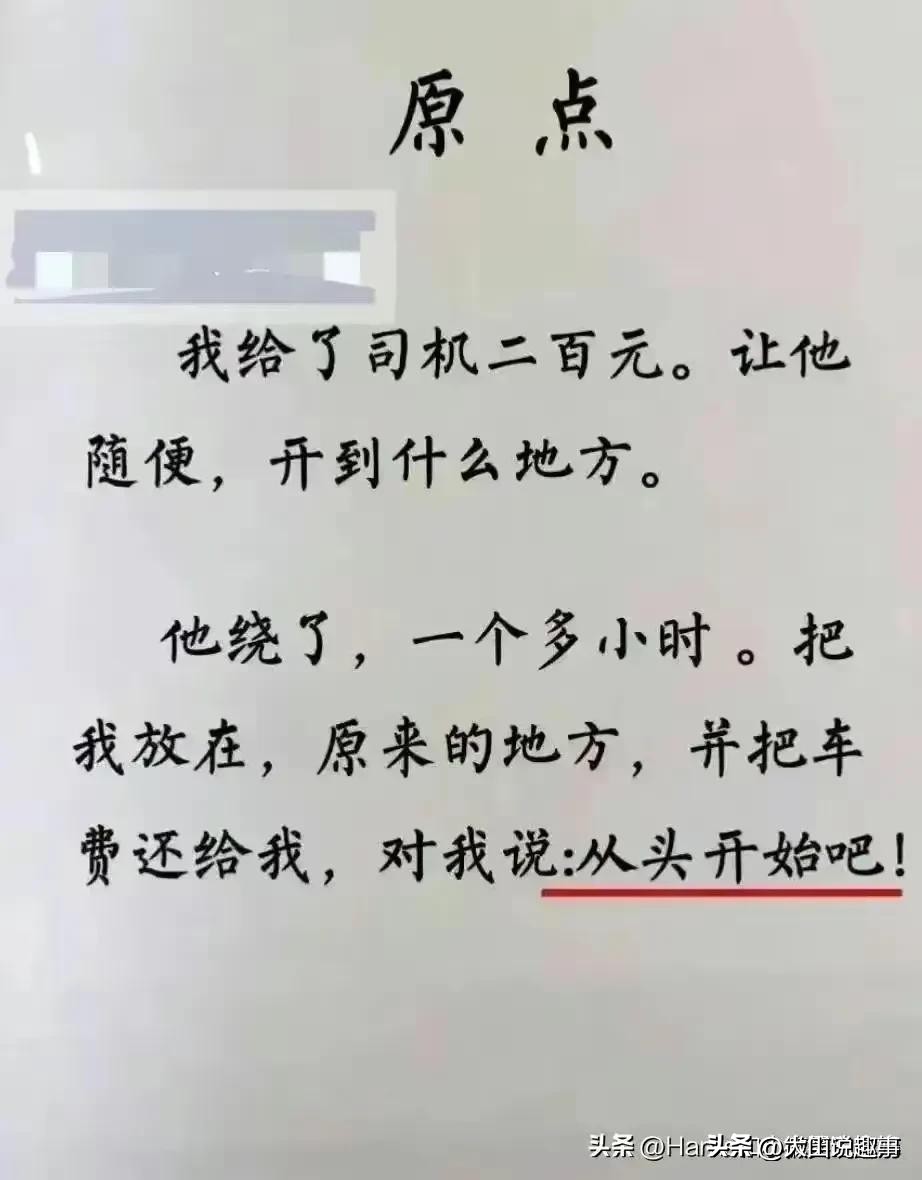 原 点
我给了司机二百元。让他
随便，开到什么地方。
他绕了，一个多小时。把
我放在，原来的地方，并把车
费还给我，对我说:从头开始吧!
头条 @Har
头条 @大田说趣事